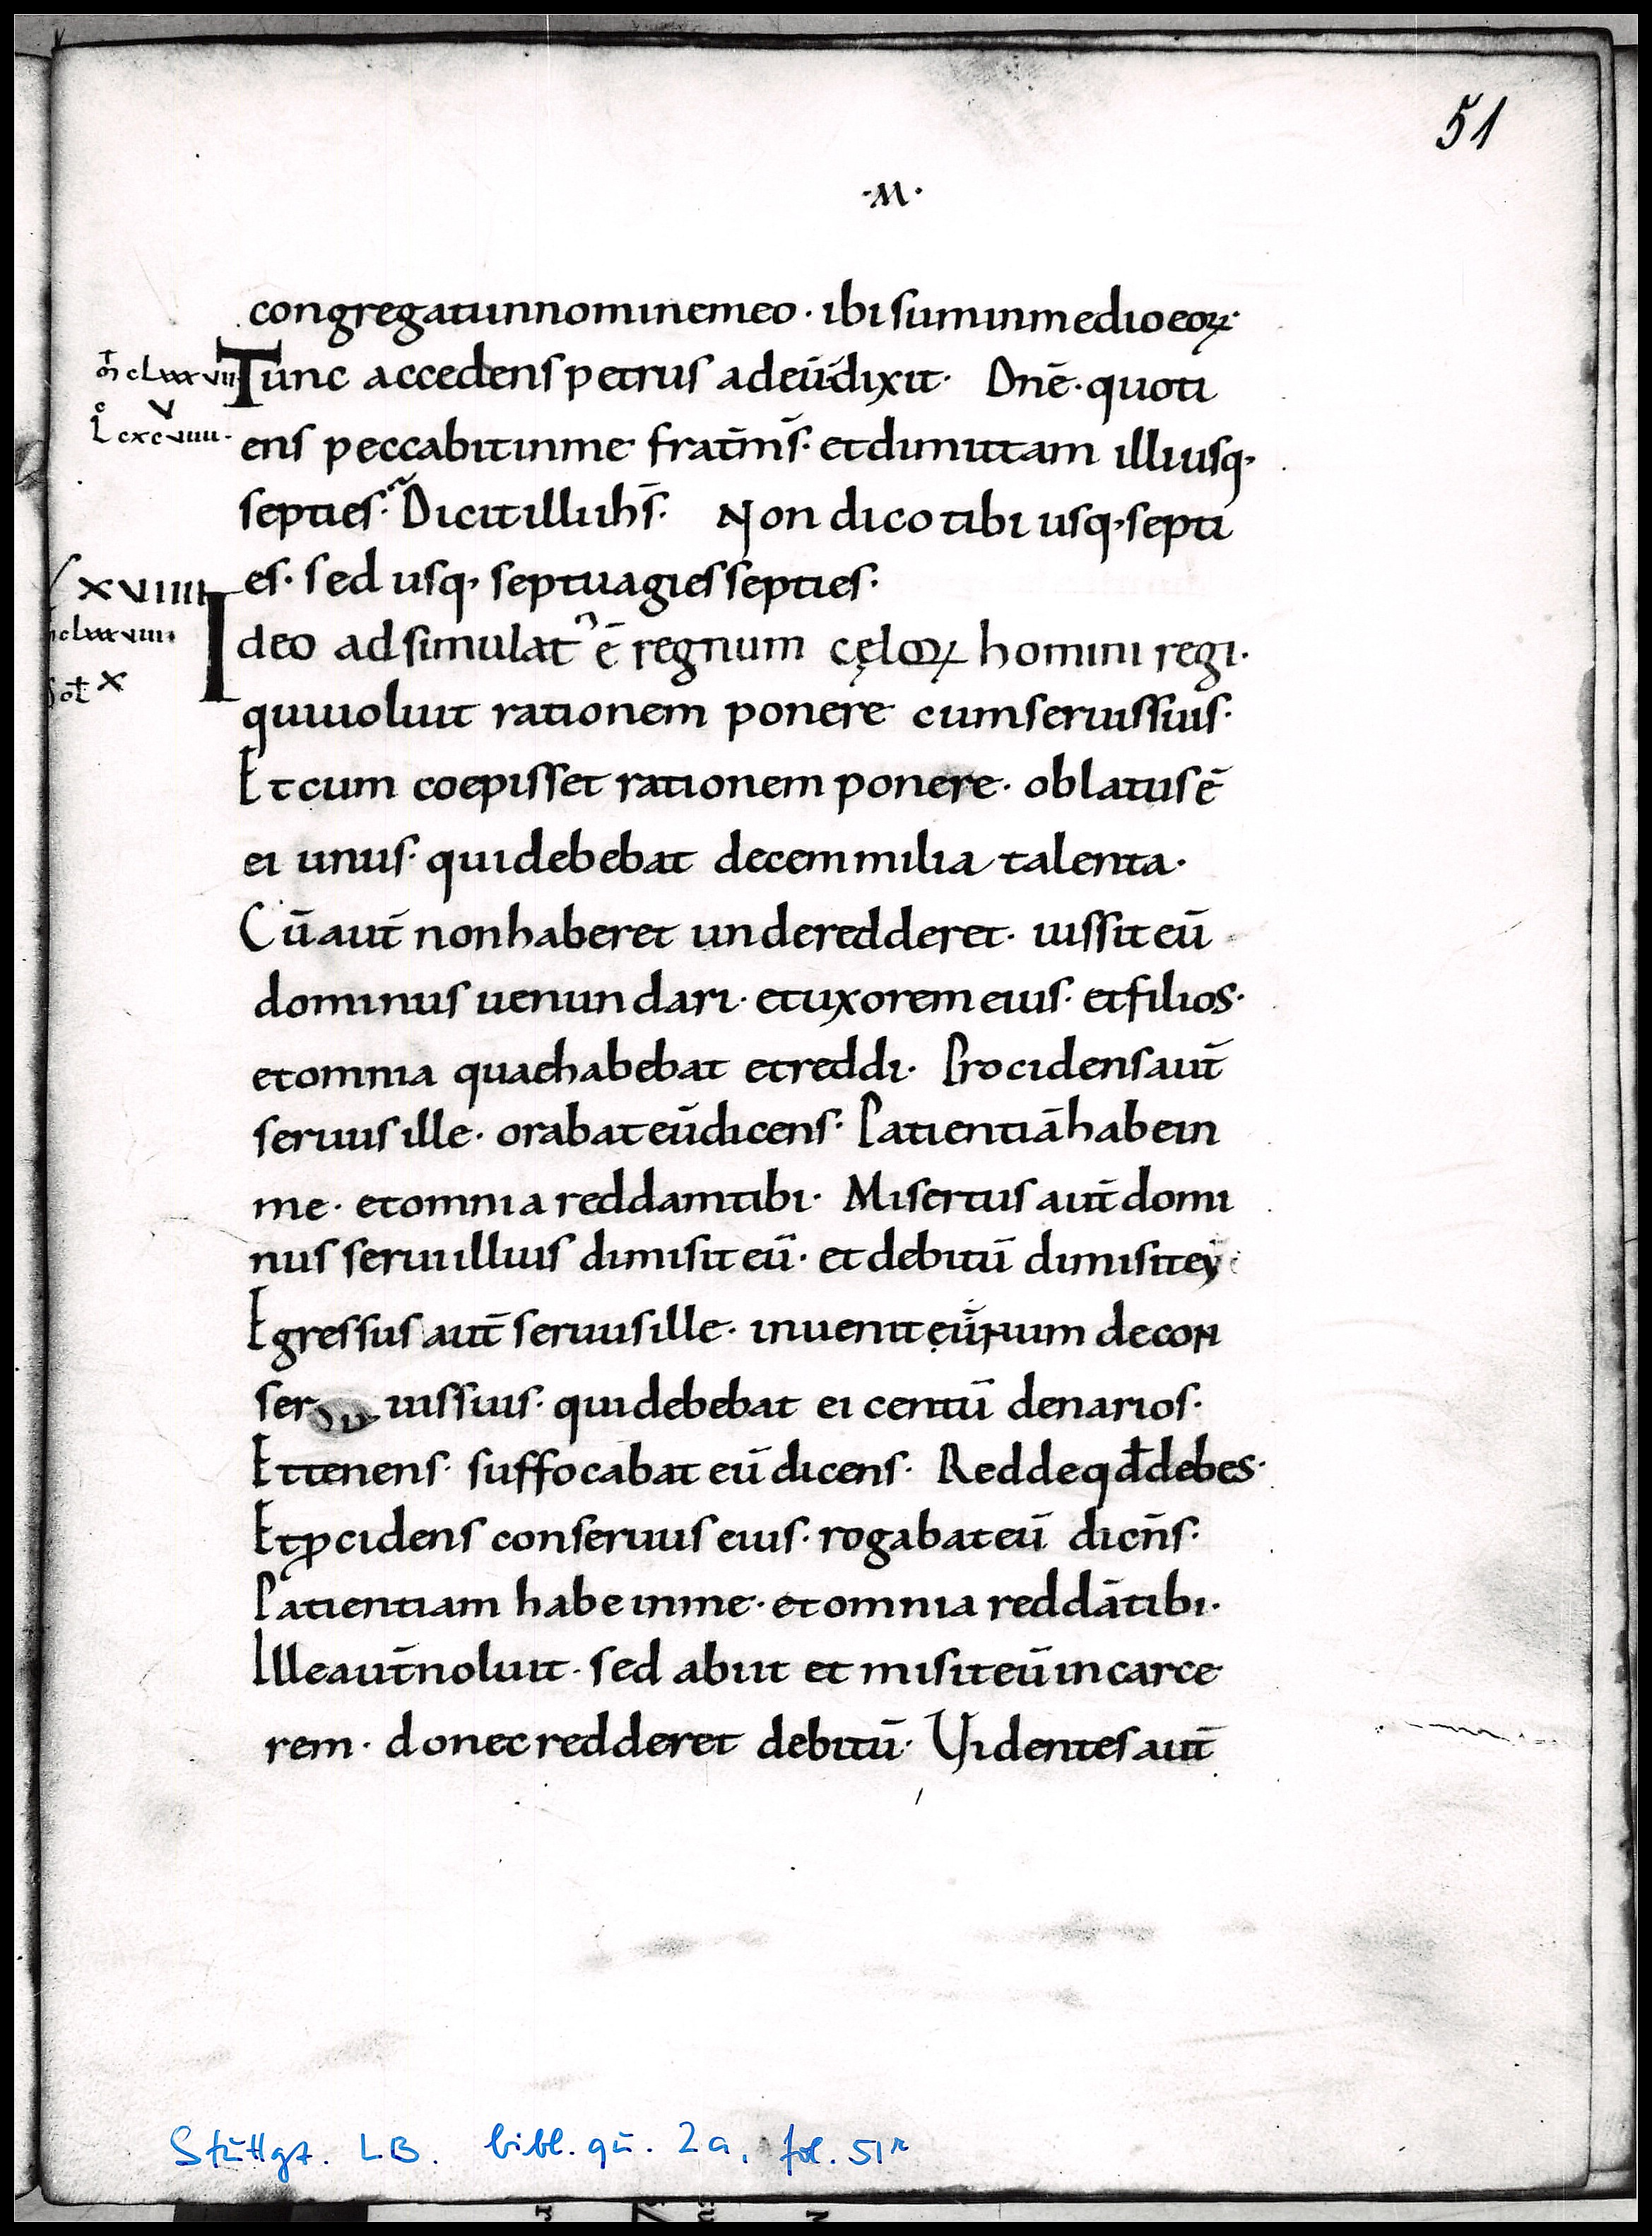 51
·M·
congregati in nomine meo · ibi sum in medio eoꝝ·
Tunc accedens petrus ad eū dixit· Dnē · quoti
ens peccabit in me frat̄ m̄s· et dimittam illi usq·
septies· Dicit illi ih̄s· Non dico tibi usq· septi
es· sed usq· septuagies septies·
XVIIII
Ideo adsimulat̉ ē regnum cęloꝝ homini regi·
X
qui uoluit rationem ponere cum seruis suis·
Et cum coepisset rationem ponere· oblatus ē
ei unus· qui debebat decem milia talenta·
Cū aut̄ non haberet unde redderet· iussit eū
dominus uenundari· et uxorem eius· et filios·
et omnia quae habebat et reddi· Procidens aut̄
seruus ille· orabat eū dicens· Patientiā habe in
me· et omnia reddam tibi· Misertus aut̄ domi
nus serui illius dimisit eū· et debitū dimisit ey
Egressus aut̄ seruus ille· inuenit eū unum de con
ser uis suis· qui debebat ei centū denarios·
Et tenens· suffocabat eū dicens· Redde qđ debes·
Et ꝓcidens conseruus eius· rogabat eū dicn̄s·
Patientiam habe in me· et omnia reddā tibi·
Ille aut̄ noluit· sed abiit et misit eū in carce
rem· donec redderet debitū· Uidentes aut̄
Stuttgt. LB. bibl. qu. 2a, fol. 51r